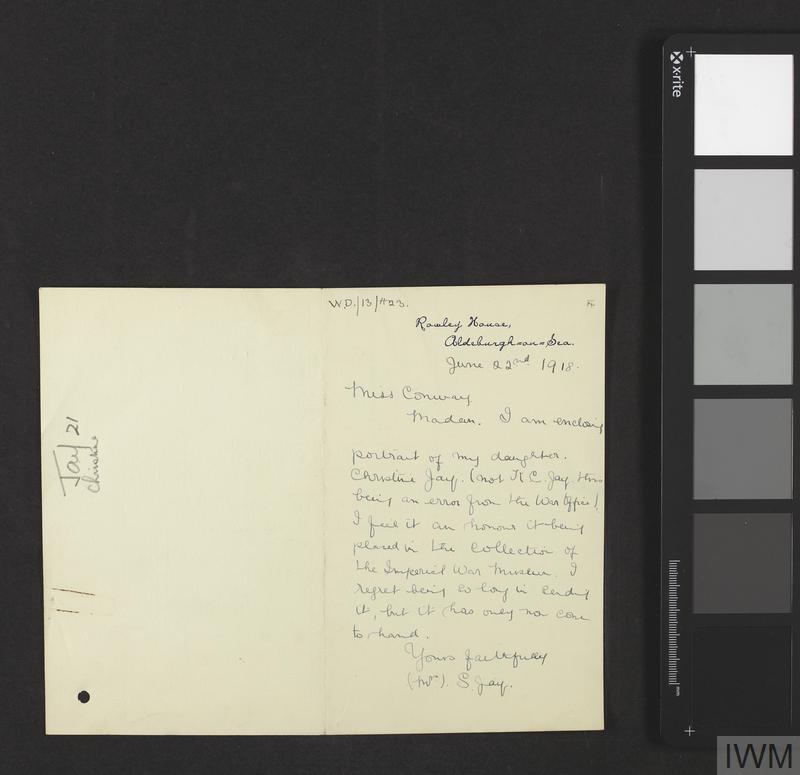 W.D./13/#23.
Rowley House,
Aldeburgh=on=Sea.
June 22nd 1918.
Miss Conway
Madam. I am enclosing
portrait of my daughter.
Christine Jay. (not K C. Jay. this
being an error from the War Office)
I feel it an honour it being
placed in the Collection of
the Imperial War Museum. I
regret being so long in sending
it, but it has only now come
to hand.
Yours faithfully
S. Jay.
Jay 21
Christine
x-rite
mm
IWM